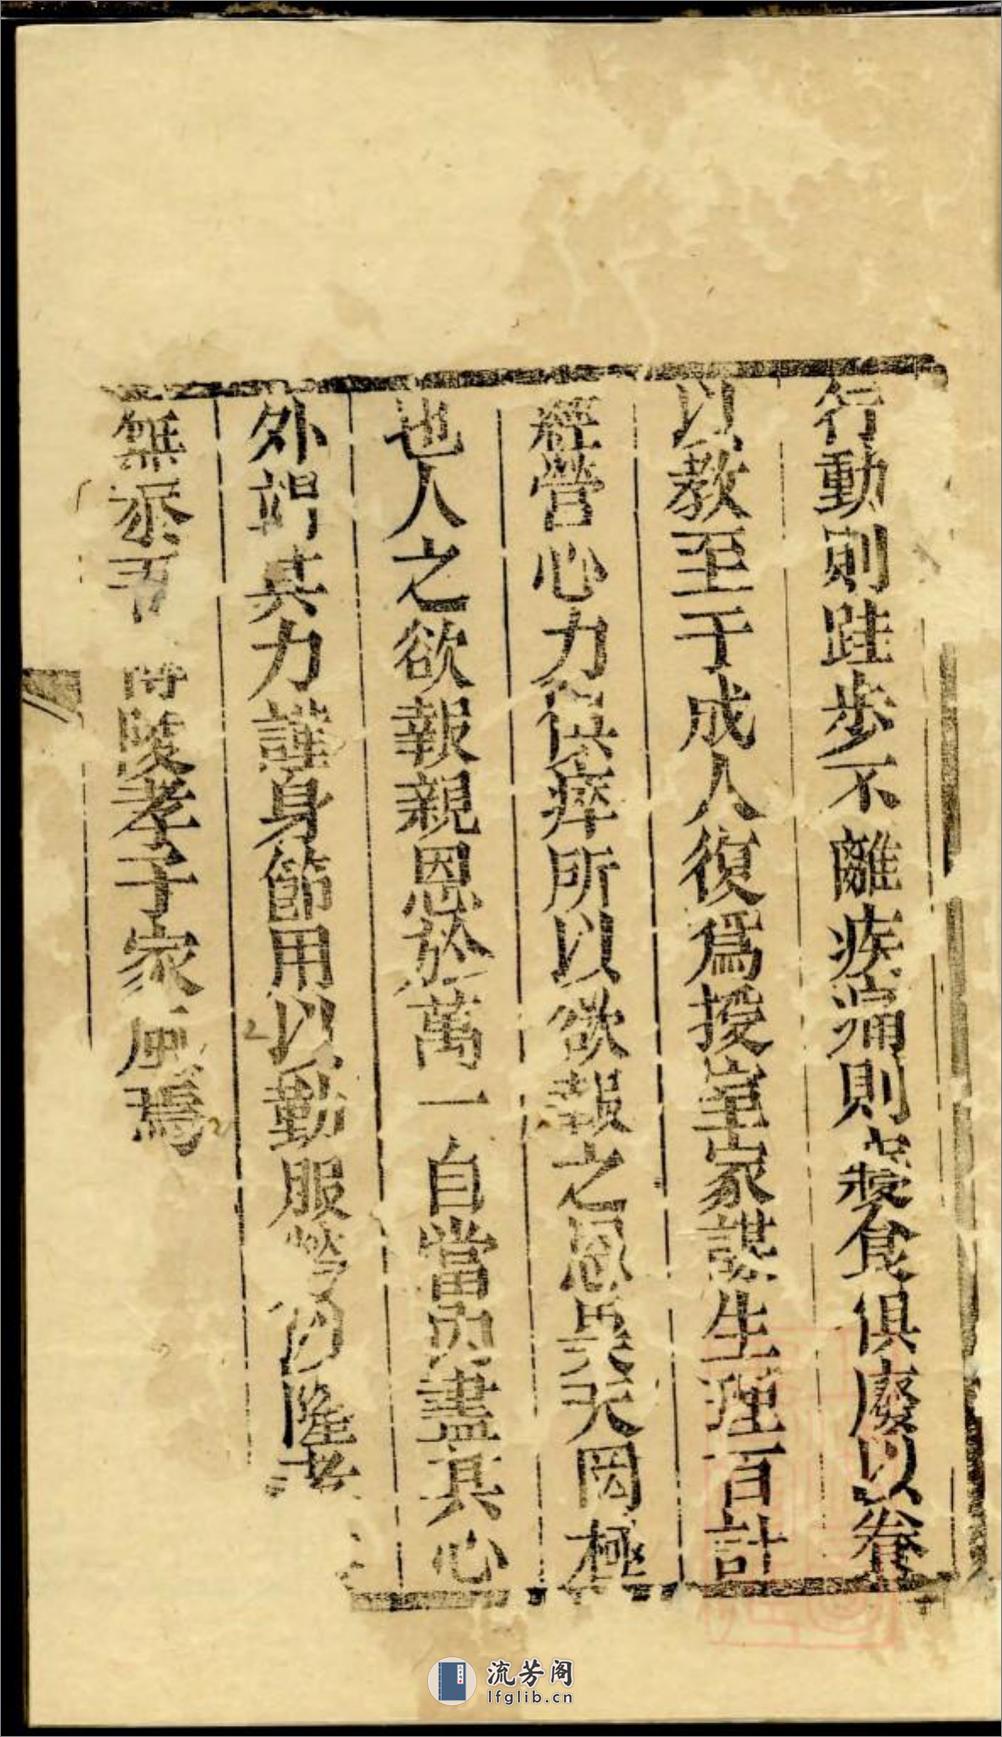 行動則跬步不離疾痛則寢食俱廢以養
以教至于成人復爲授室家謀生理百計
經營心力俱瘁所以欲報之恩昊天罔極
也人之欲報親恩於萬一自當內盡其心
外竭其力謹身節用以勤服勞以隆孝
無忝吾 陵孝子家風焉
流芳阁
lfglib.cn